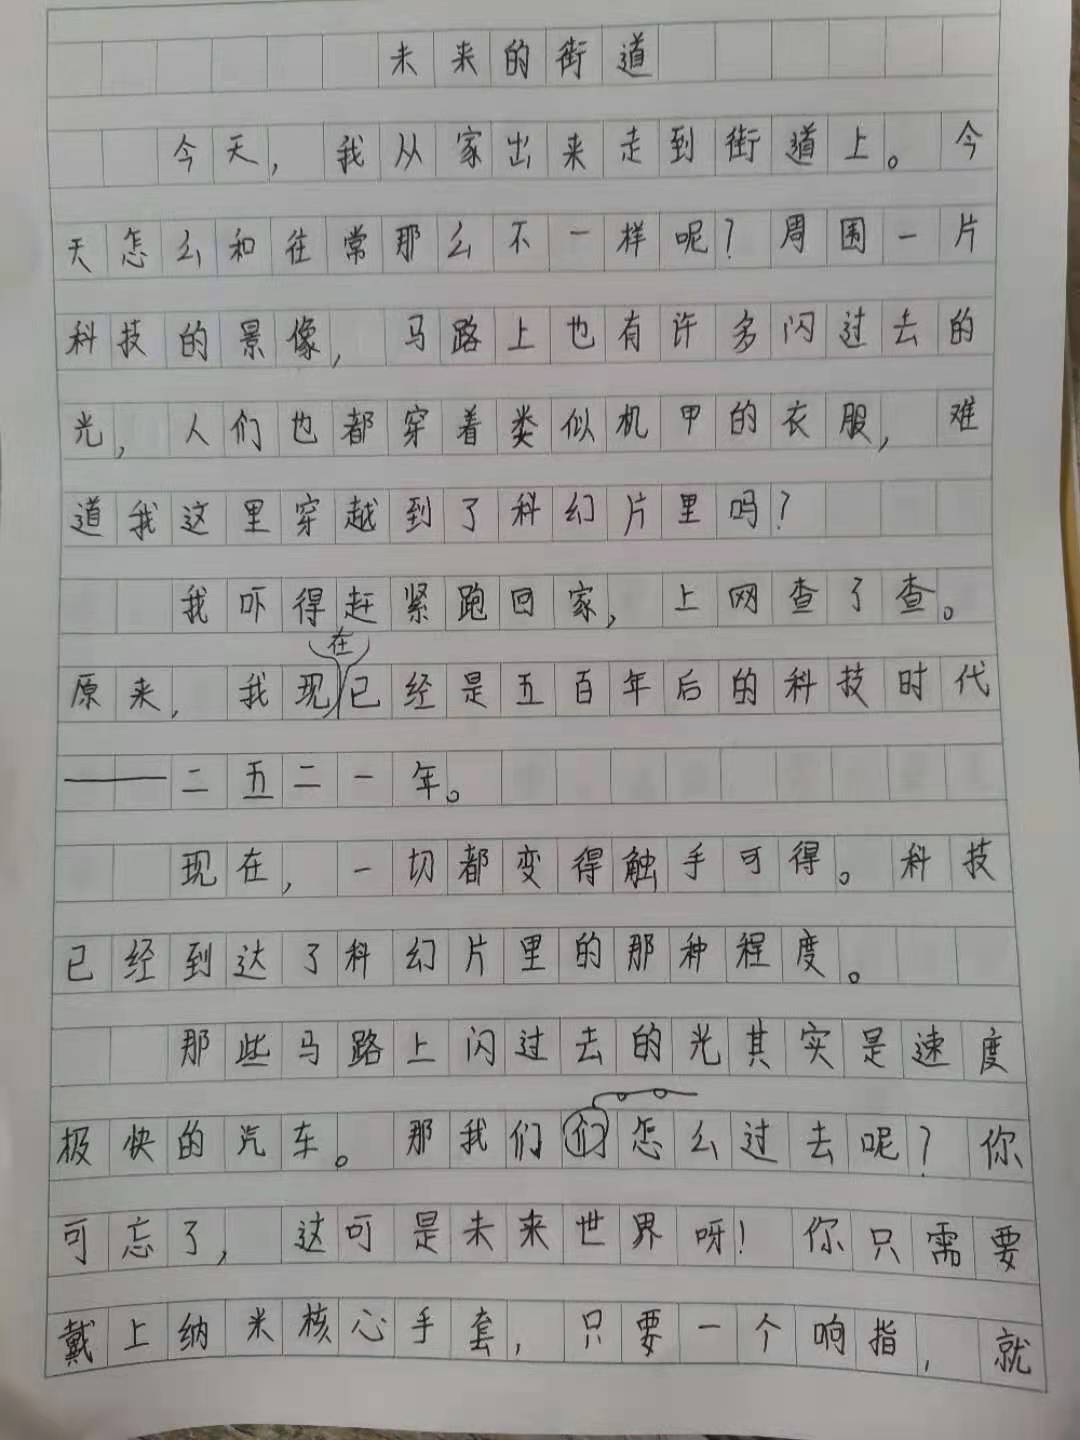 未来的街道
今天,我从家出来走到街道上。今
天怎么和往常那么不一样呢?周围一片
科技的景像,马路上也有许多闪过去的
光,人们也都穿着类似机甲的衣服,难
道我这里穿越到了科幻片里吗?
我吓得赶紧跑回家,上网查了查。
原来,我现在已经是五百年后的科技时代
——二五二一年。
现在,一切都变得触手可得。科技
已经到达了科幻片里的那种程度。
那些马路上闪过去的光其实是速度
极快的汽车。那我们们怎么过去呢?你
可忘了,这可是未来世界呀!你只需要
戴上纳米核心手套,只要一个响指,就